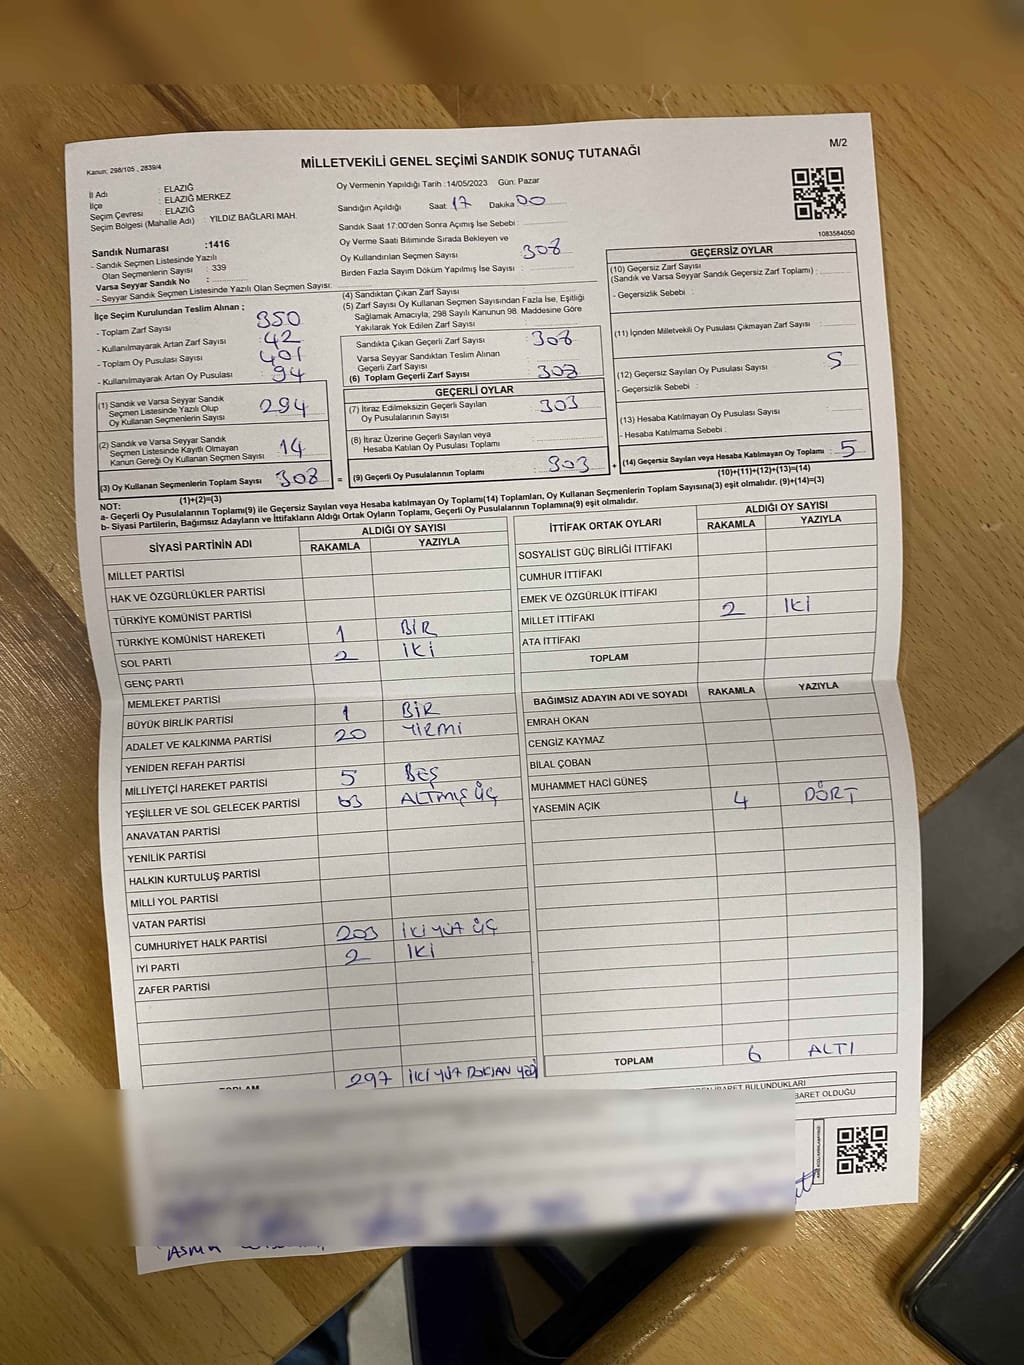 M/2
Kanun: 298/105 , 2839/4
MİLLETVEKİLİ GENEL SEÇİMİ SANDIK SONUÇ TUTANAĞI
İl Adı : ELAZIĞ
İlçe : ELAZIĞ MERKEZ
Seçim Çevresi : ELAZIĞ
Seçim Bölgesi (Mahalle Adı) : YILDIZ BAĞLARI MAH.
Sandık Numarası :1416
- Sandık Seçmen Listesinde Yazılı
Olan Seçmenlerin Sayısı : 339
Varsa Seyyar Sandık No :
- Seyyar Sandık Seçmen Listesinde Yazılı Olan Seçmen Sayısı:
İlçe Seçim Kurulundan Teslim Alınan ;
- Toplam Zarf Sayısı 350
- Kullanılmayarak Artan Zarf Sayısı 42
- Toplam Oy Pusulası Sayısı 401
- Kullanılmayarak Artan Oy Pusulası 94
(1) Sandık ve Varsa Seyyar Sandık
Seçmen Listesinde Yazılı Olup
Oy Kullanan Seçmenlerin Sayısı 294
(2) Sandık ve Varsa Seyyar Sandık
Seçmen Listesinde Kayıtlı Olmayan
Kanun Gereği Oy Kullanan Seçmen Sayısı 14
(3) Oy Kullanan Seçmenlerin Toplam Sayısı 308 =
(1)+(2)=(3)
Oy Vermenin Yapıldığı Tarih :14/05/2023 Gün: Pazar
Sandığın Açıldığı Saat 17 Dakika 00
Sandık Saat 17:00'den Sonra Açımış İse Sebebi :
Oy Verme Saati Bitiminde Sırada Bekleyen ve
Oy Kullandırılan Seçmen Sayısı : 308
Birden Fazla Sayım Döküm Yapılmış İse Sayısı :
(4) Sandıktan Çıkan Zarf Sayısı :
(5) Zarf Sayısı Oy Kullanan Seçmen Sayısından Fazla İse, Eşitliği
Sağlamak Amacıyla; 298 Sayılı Kanunun 98. Maddesine Göre
Yakılarak Yok Edilen Zarf Sayısı :
Sandıkta Çıkan Geçerli Zarf Sayısı : 308
Varsa Seyyar Sandıktan Teslim Alınan
Geçerli Zarf Sayısı :
(6) Toplam Geçerli Zarf Sayısı : 308
GEÇERLİ OYLAR
(7) İtiraz Edilmeksizin Geçerli Sayılan
Oy Pusulalarının Sayısı : 303
(8) İtiraz Üzerine Geçerli Sayılan veya
Hesaba Katılan Oy Pusulası Toplamı :
(9) Geçerli Oy Pusulalarının Toplamı : 303 +
1083584050
GEÇERSİZ OYLAR
(10) Geçersiz Zarf Sayısı
(Sandık ve Varsa Seyyar Sandık Geçersiz Zarf Toplamı) :
- Geçersizlik Sebebi :
(11) İçinden Milletvekili Oy Pusulası Çıkmayan Zarf Sayısı :
(12) Geçersiz Sayılan Oy Pusulası Sayısı : 5
- Geçersizlik Sebebi :
(13) Hesaba Katılmayan Oy Pusulası Sayısı :
- Hesaba Katılmama Sebebi :
(14) Geçersiz Sayılan veya Hesaba Katılmayan Oy Toplamı : 5
(10)+(11)+(12)+(13)=(14)
NOT:
a- Geçerli Oy Pusulalarının Toplamı(9) ile Geçersiz Sayılan veya Hesaba katılmayan Oy Toplamı(14) Toplamları, Oy Kullanan Seçmenlerin Toplam Sayısına(3) eşit olmalıdır. (9)+(14)=(3)
b- Siyasi Partilerin, Bağımsız Adayların ve İttifakların Aldığı Ortak Oyların Toplamı, Geçerli Oy Pusulalarının Toplamına(9) eşit olmalıdır.
SİYASİ PARTİNİN ADI ALDIĞI OY SAYISI
RAKAMLA YAZIYLA
MİLLET PARTİSİ
HAK VE ÖZGÜRLÜKLER PARTİSİ
TÜRKİYE KOMÜNİST PARTİSİ
TÜRKİYE KOMÜNİST HAREKETİ 1 BİR
SOL PARTİ 2 İKİ
GENÇ PARTİ
MEMLEKET PARTİSİ
BÜYÜK BİRLİK PARTİSİ 1 BİR
ADALET VE KALKINMA PARTİSİ 20 YİRMİ
YENİDEN REFAH PARTİSİ
MİLLİYETÇİ HAREKET PARTİSİ 5 BEŞ
YEŞİLLER VE SOL GELECEK PARTİSİ 63 ALTMIŞ ÜÇ
ANAVATAN PARTİSİ
YENİLİK PARTİSİ
HALKIN KURTULUŞ PARTİSİ
MİLLİ YOL PARTİSİ
VATAN PARTİSİ
CUMHURİYET HALK PARTİSİ 203 İKİ YÜZ ÜÇ
İYİ PARTİ 2 İKİ
ZAFER PARTİSİ
TOPLAM 297 İKİ YÜZ DOKSAN YEDİ
İTTİFAK ORTAK OYLARI ALDIĞI OY SAYISI
RAKAMLA YAZIYLA
SOSYALİST GÜÇ BİRLİĞİ İTTİFAKI
CUMHUR İTTİFAKI
EMEK VE ÖZGÜRLÜK İTTİFAKI
MİLLET İTTİFAKI 2 İKİ
ATA İTTİFAKI
TOPLAM
BAĞIMSIZ ADAYIN ADI VE SOYADI RAKAMLA YAZIYLA
EMRAH OKAN
CENGİZ KAYMAZ
BİLAL ÇOBAN
MUHAMMET HACİ GÜNEŞ
YASEMİN AÇIK 4 DÖRT
TOPLAM 6 ALTI
İBARET BULUNDUKLARI
BARET OLDUĞU